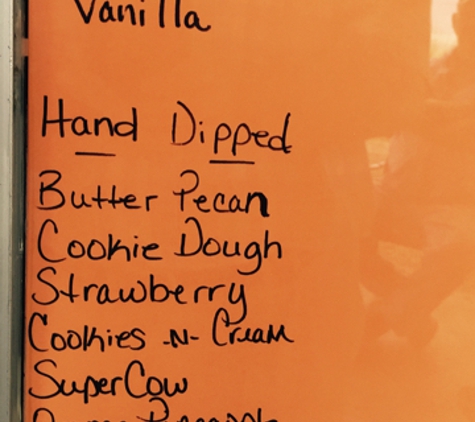 Vanilla
Hand Dipped
Butter Pecan
Cookie Dough
Strawberry
Cookies -N- Cream
SuperCow